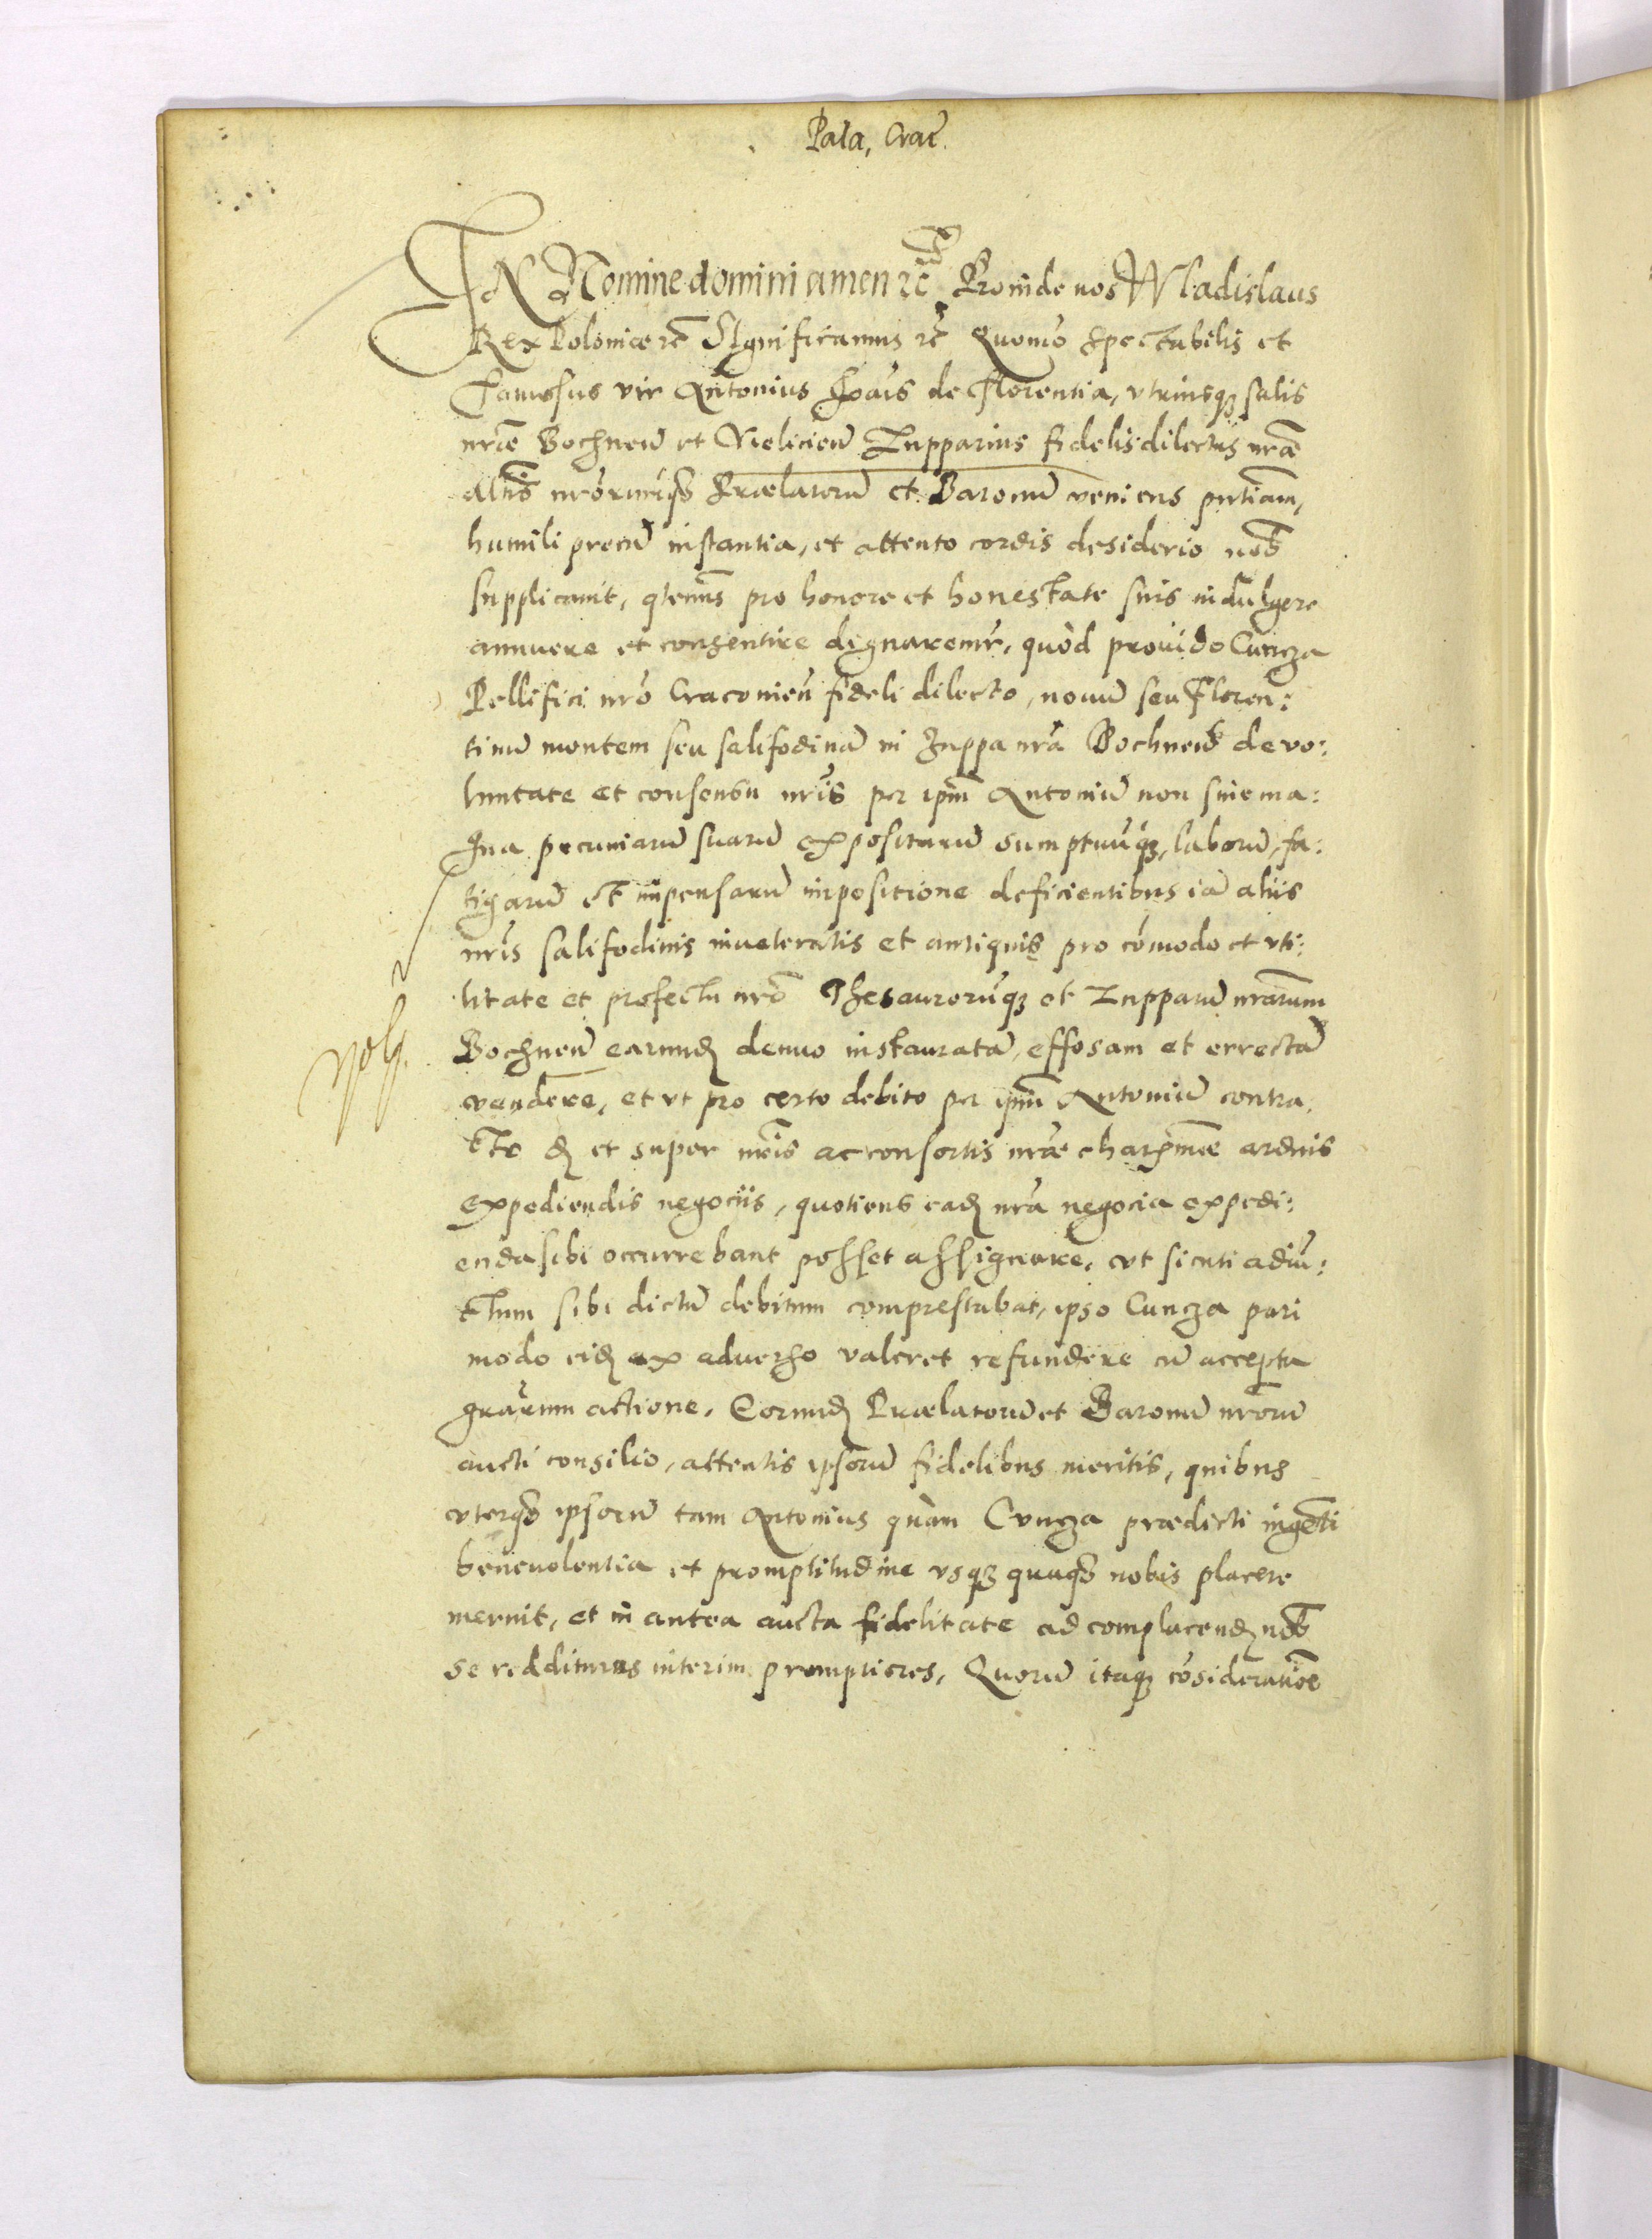 Pala, Crac̃.
IN Nomine domini amen ꝛc̃ Proinde nos Wladislaus
Rex Poloniæ ꝛc̃ SIgnificamus ꝛc̃ Quomõ spectabilis et
famosus vir Antonius de Florentia, vtriusqꝫ salis
nr̃æ Bochneñ et Vielicieñ Zupparius fidelis dilectus nræ̃
nrõrumqꝫ Prælatorũ et Baronũ veniens pntiam,
humili precũ instantia, et attento cordis desiderio nob̃
supplicauit, qtenus pro honore et honestate suis indulgere
annuere et consentire dignaremr̃, quòd prouido Cuncza
Pellifici nr̃o Cracouieñ fideli dilecto, nouũ seu Floren:
tinũ montem seu salifodinã in Zuppa nrã Bochneñ de vo:
luntate et consensu nrĩs per ipm̃ Antoniũ non sine ma:
gna pecuniarũ suarũ expositarũ sumptuũqꝫ, laborũ, fa:
tigarũ et impensarũ impositione deficientibus iã aliis
nrĩs salifodinis inueteratis et antiquis pro cõmodo et vti:
litate et profectu nrõ Thesaurorũqꝫ et Zupparũ nrãrum
Bochneñ earundẽ denuo instauratã, effosam et errectã
vendere, et vt pro certo debito per ipm̃ Antoniũ contra
cto et super nrĩs ac consortis nrãe charissimæ arduis
expediendis negociis, quotiens eadẽ nrã negocia expedi:
enda sibi occurrebant posset assignare, vt sicuti adiũ:
ctum sibi dictũ debitum comprestabat, ipso Cuncza pari
modo eidẽ ex aduerso valeret refundere cũ accepta
grãrum actione, Eorundẽ Prælatorũ et Baronũ nrõrũ
aucti consilio, attentis ipsorũ fidelibus meritis, quibus
vterqꝫ ipsorũ tam Antonius quàm Cuncza prædicti ingẽti
beneuolentia et promptitudine vsqꝫ quaqꝫ nobis placere
meruit, et in antea aucta fidelitate ad complacendẽ nob̃
se redditurus interim promptiores, Quorũ itaqꝫ cõsideratiõe